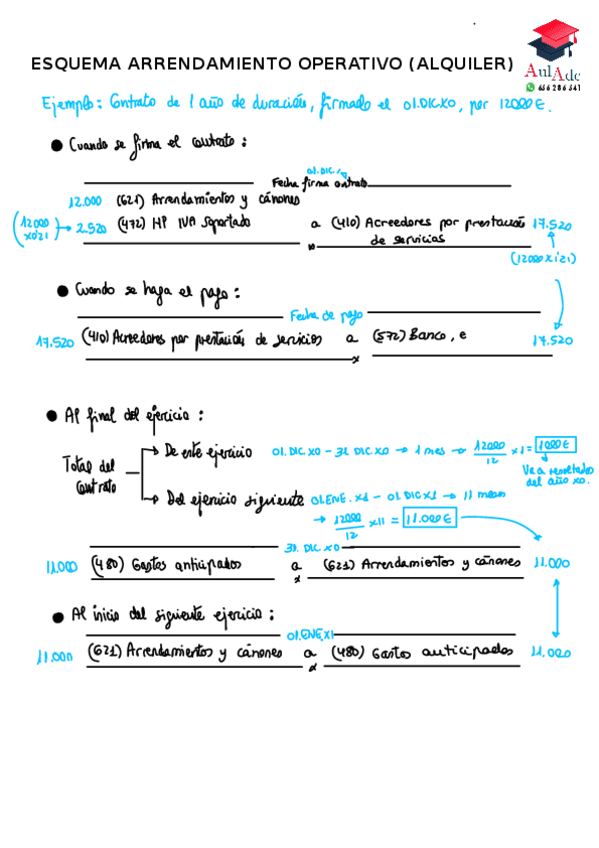 ESQUEMA ARRENDAMIENTO OPERATIVO (ALQUILER)
AulAde
656 286 541
Ejemplo: Contrato de 1 año de duración, firmado el 01.DIC.X0, por 12000€.
● Cuando se firma el contrato:
01.DIC.
Fecha firma contrato
12.000 (621) Arrendamientos y cánones
(12000 x0'21) → 2.520 (472) HP IVA Soportado a (410) Acreedores por prestación 17.520
de servicios
(12000 x 1'21)
● Cuando se haga el pago:
Fecha de pago
17.520 (410) Acreedores por prestación de servicios a (572) Banco, e 17.520
● Al final del ejercicio:
Total del contrato
De este ejercicio 01.DIC.X0 - 31.DIC.X0 → 1 mes → 12000/12 x1 = 1000€
Va a resultados del año X0.
Del ejercicio siguiente 01.ENE.X1 - 01.DIC.X1 → 11 meses
→ 12000/12 x11 = 11.000€
31.DIC.X0
11.000 (480) Gastos anticipados a (621) Arrendamientos y cánones 11.000
● Al inicio del siguiente ejercicio:
01.ENE.X1
11.000 (621) Arrendamientos y cánones a (480) Gastos anticipados 11.000